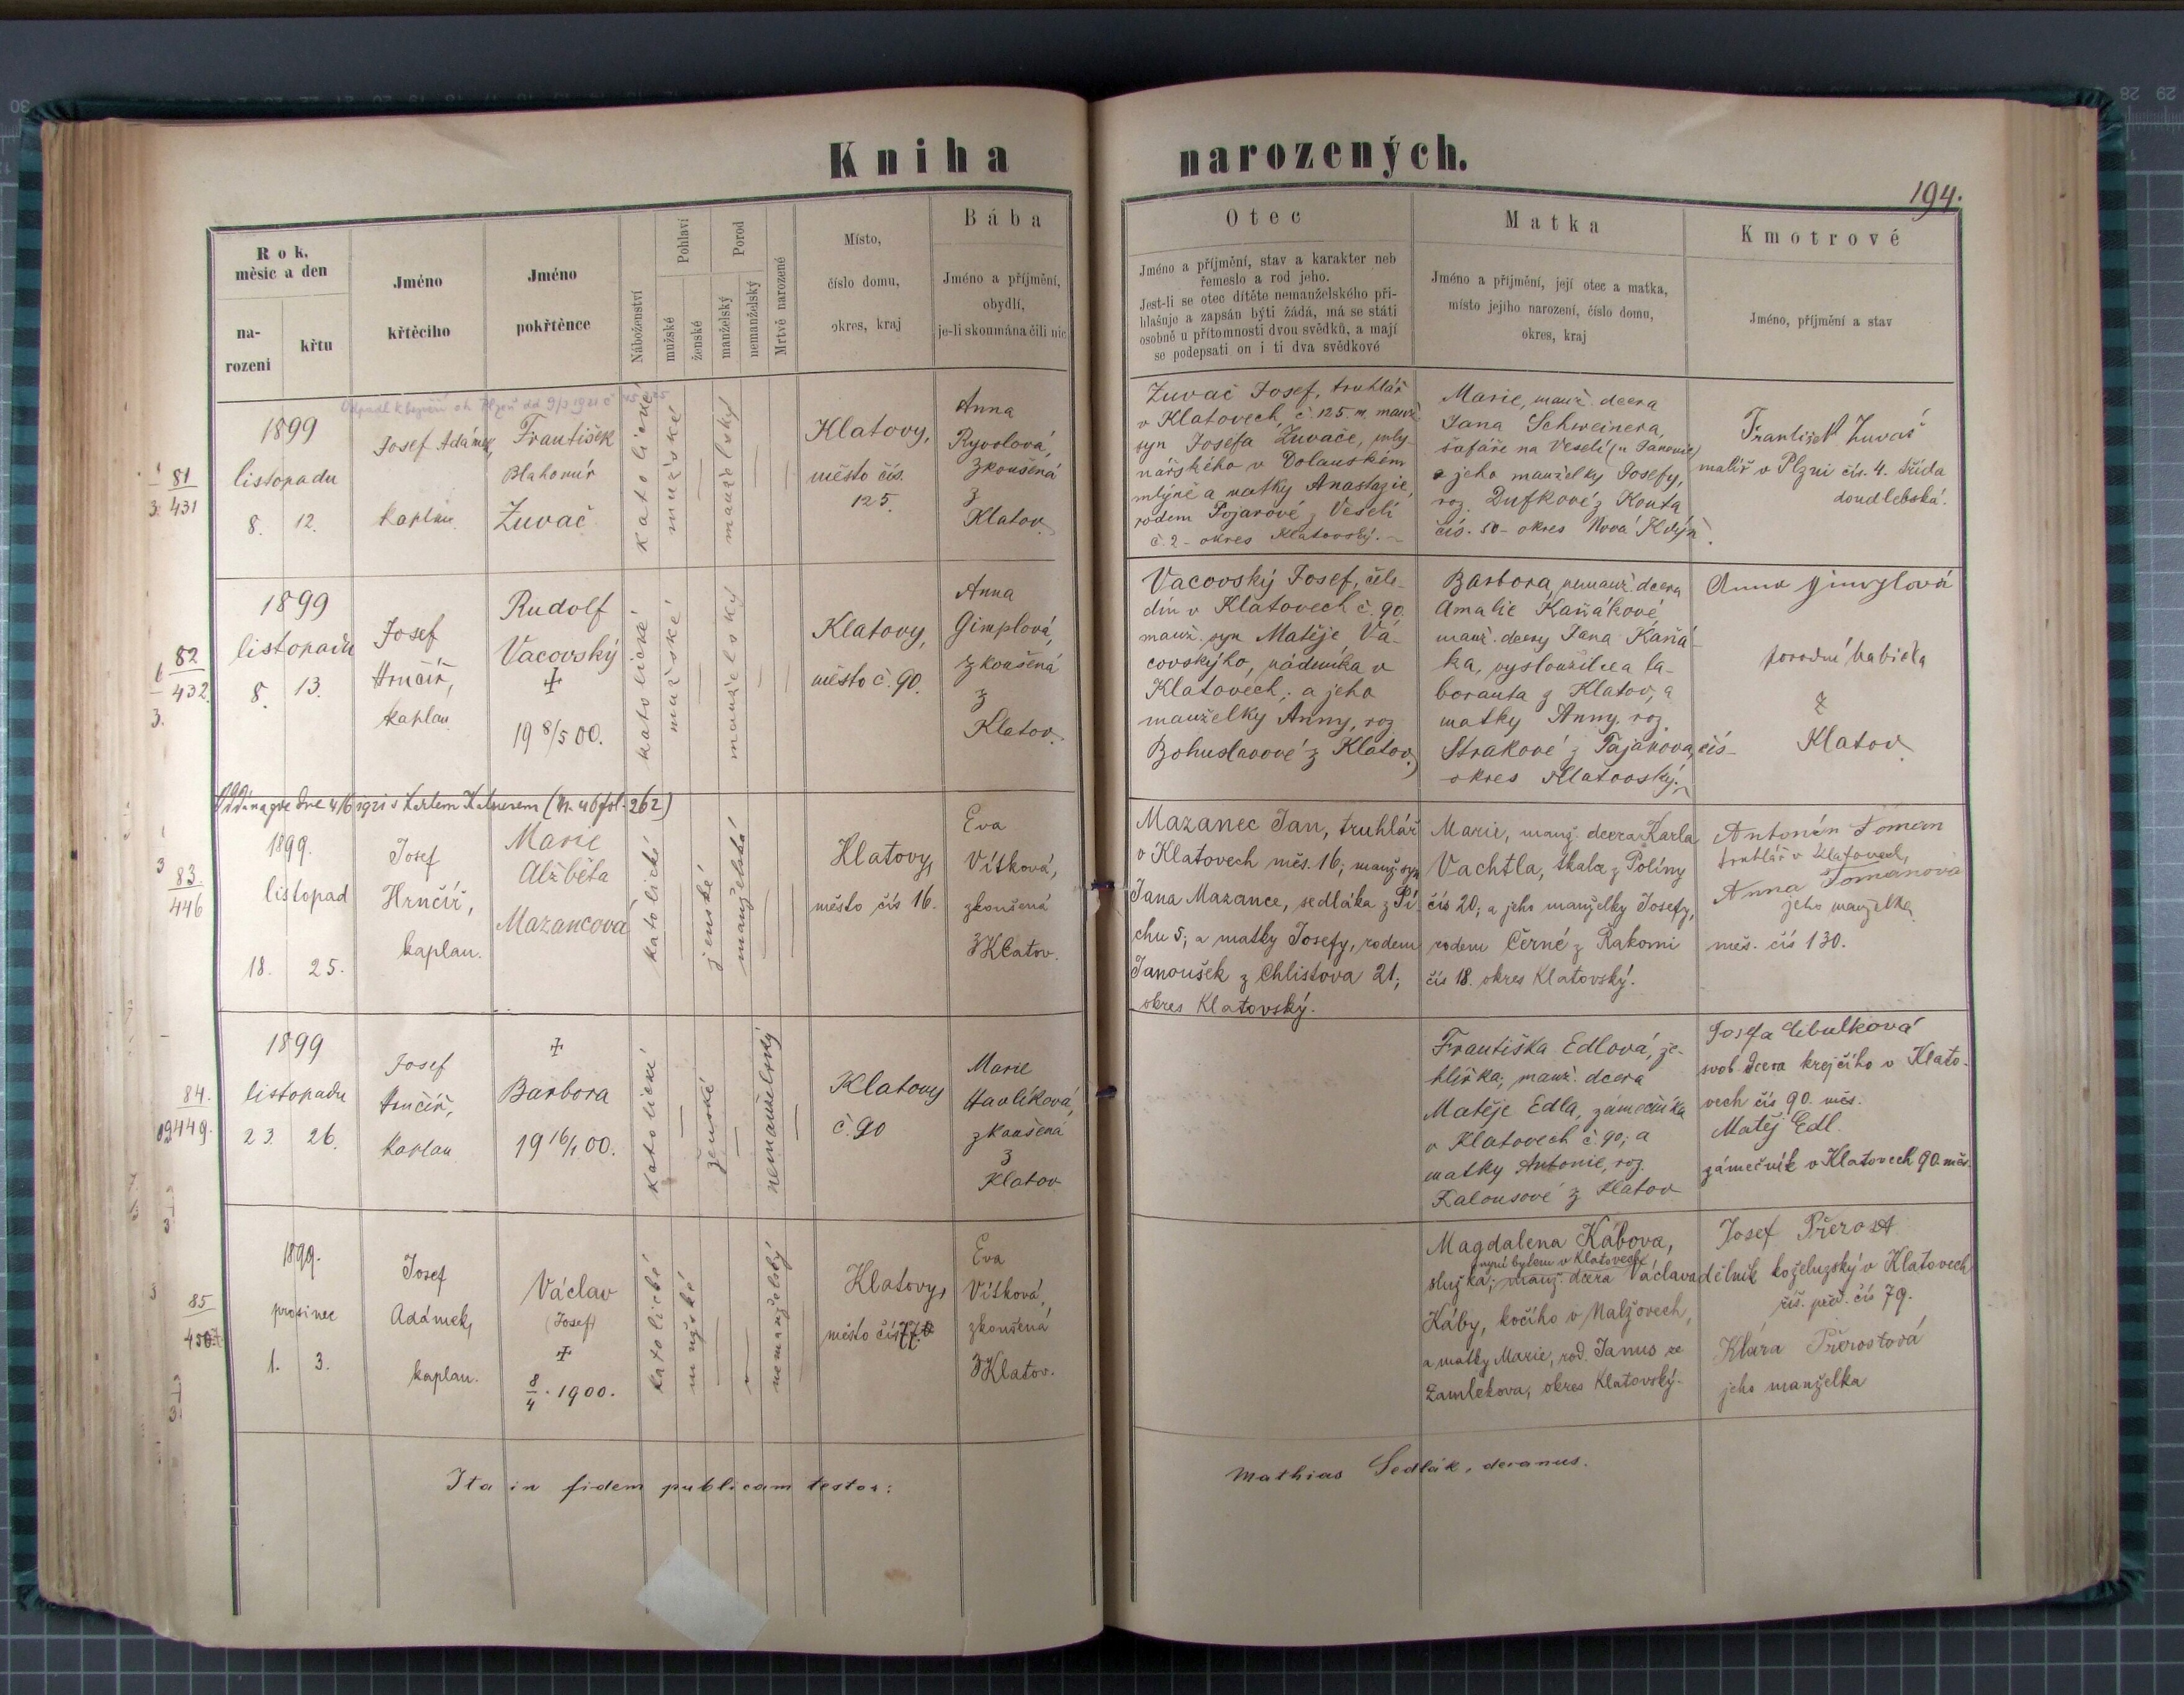 Kniha narozených.
194.
Rok, měsíc a den
narození
křtu
Jméno křtěcího
Jméno pokřtěnce
Náboženství
Pohlaví
mužské
ženské
Porod
manželský
nemanželský
Mrtvě narozené
Místo,
číslo domu,
okres, kraj
Bába
Jméno a příjmění,
obydlí,
je-li skoumána čili nic
Otec
Jméno a příjmění, stav a karakter neb
řemeslo a rod jeho.
Jest-li se otec dítěte nemanželského při-
hlašuje a zapsán býti žádá, má se státi
osobně u přítomnosti dvou svědků, a mají
se podepsati on i ti dva svědkové
Matka
Jméno a příjmění, její otec a matka,
místo jejího narození, číslo domu,
okres, kraj
Kmotrové
Jméno, příjmění a stav
81
431
1899
listopadu
8. 12.
Josef Adámek,
kaplan
František
Blahomír
Zuvač
katolické
mužské
manželský
Klatovy,
město čís.
125.
Anna
zkoušená
z
Klatov.
Zuvač Josef, truhlář
v Klatovech, č. 125. m. manž.
syn Josefa Zuvače, mly-
nářského v Dolanském
mlýně a matky Anastazie,
rodem Pojarové z Veselí
č. 2 - okres Klatovský.
Marie, manž. dcera
Jana Schweinera,
šafáře na Veselí (u Janovic)
a jeho manželky Josefy,
roz. Dufkové z Kouta
čís. 50 - okres Nová Kdýň.
František Zuvač
malíř v Plzni čís. 4. třída
doudlebská.
82
432
3.
1899
listopadu
8. 13.
Josef
Hrnčíř,
kaplan
Rudolf
Vacovský
+
19 8/5 00.
katolické
mužské
manželský
Klatovy,
město č. 90.
Anna
Gimplová,
zkoušená
z
Klatov.
Vacovský Josef, čele-
dín v Klatovech č. 90.
manž. syn Matěje Va-
covského, nádeníka v
Klatovech, a jeho
manželky Anny, roz.
Bohuslavové z Klatov.
Barbora, nemanž. dcera
Amalie Kaňákové,
manž. dcery Jana Kaňá-
ka, vysloužilce la-
boranta z Klatov, a
matky Anny, roz.
Strakové z Tajanova, čís -
okres Klatovský.
Anna Gimplová
porodní babička
z
Klatov
83.
446
1899.
listopad
18. 25.
Josef
Hrnčíř,
kaplan.
Marie
Alžběta
Mazancová
katolické
ženské
manželské
Klatovy,
město čís 16.
Eva
Vítková,
zkoušená
z Klatov.
Mazanec Jan, truhlář
v Klatovech měs. 16; manž. syn
Jana Mazance, sedláka z Pí-
chu 5; a matky Josefy, rodem
Janoušek z Chlistova 21;
okres Klatovský.
Marie, manž. dcera Karla
Vachtla, tkalce z Políny
čís 20; a jeho manželky Josefy,
rodem Černé z Rakomi
čís 18. okres Klatovský.
Antonín Toman
truhlář v Klatovech,
Anna Tomanová
jeho manželka
měs. čís 130.
84.
449.
1899
listopadu
23. 26.
Josef
Hrnčíř,
kaplan
+
Barbora
19 16/1 00.
katolické
ženské
nemanželský
Klatovy
č. 90
Marie
Havlíková,
zkoušená
z
Klatov
Františka Edlová, že-
hlířka; manž. dcera
Matěje Edla, zámečníka
v Klatovech č. 90; a
matky Antonie, roz.
Kalousové z Klatov
Josefa Cibulková
svob. dcera krejčího v Klato-
vech čís 90. měs.
Matěj Edl.
zámečník v Klatovech 90. měs.
85
1899.
prosinec
1. 3.
Josef
Adámek,
kaplan.
Václav
(Josef)
+
8/4. 1900.
katolické
mužské
nemanželský
Klatovy,
město čís
Eva
Vítková,
zkoušená
z Klatov.
Magdalena Kábova,
nyní bytem v Klatovech
služka; manž. dcera Václava
Káby, kočího v Malžovech,
a matky Marie, rod. Janus ze
Zamlekova, okres Klatovský.
Josef Přerost
dělník koželuzský v Klatovech
říš. před. čís 79.
Klára Přerostová
jeho manželka
Ita in fidem publicam testor:
Mathias Sedlák, decanus.